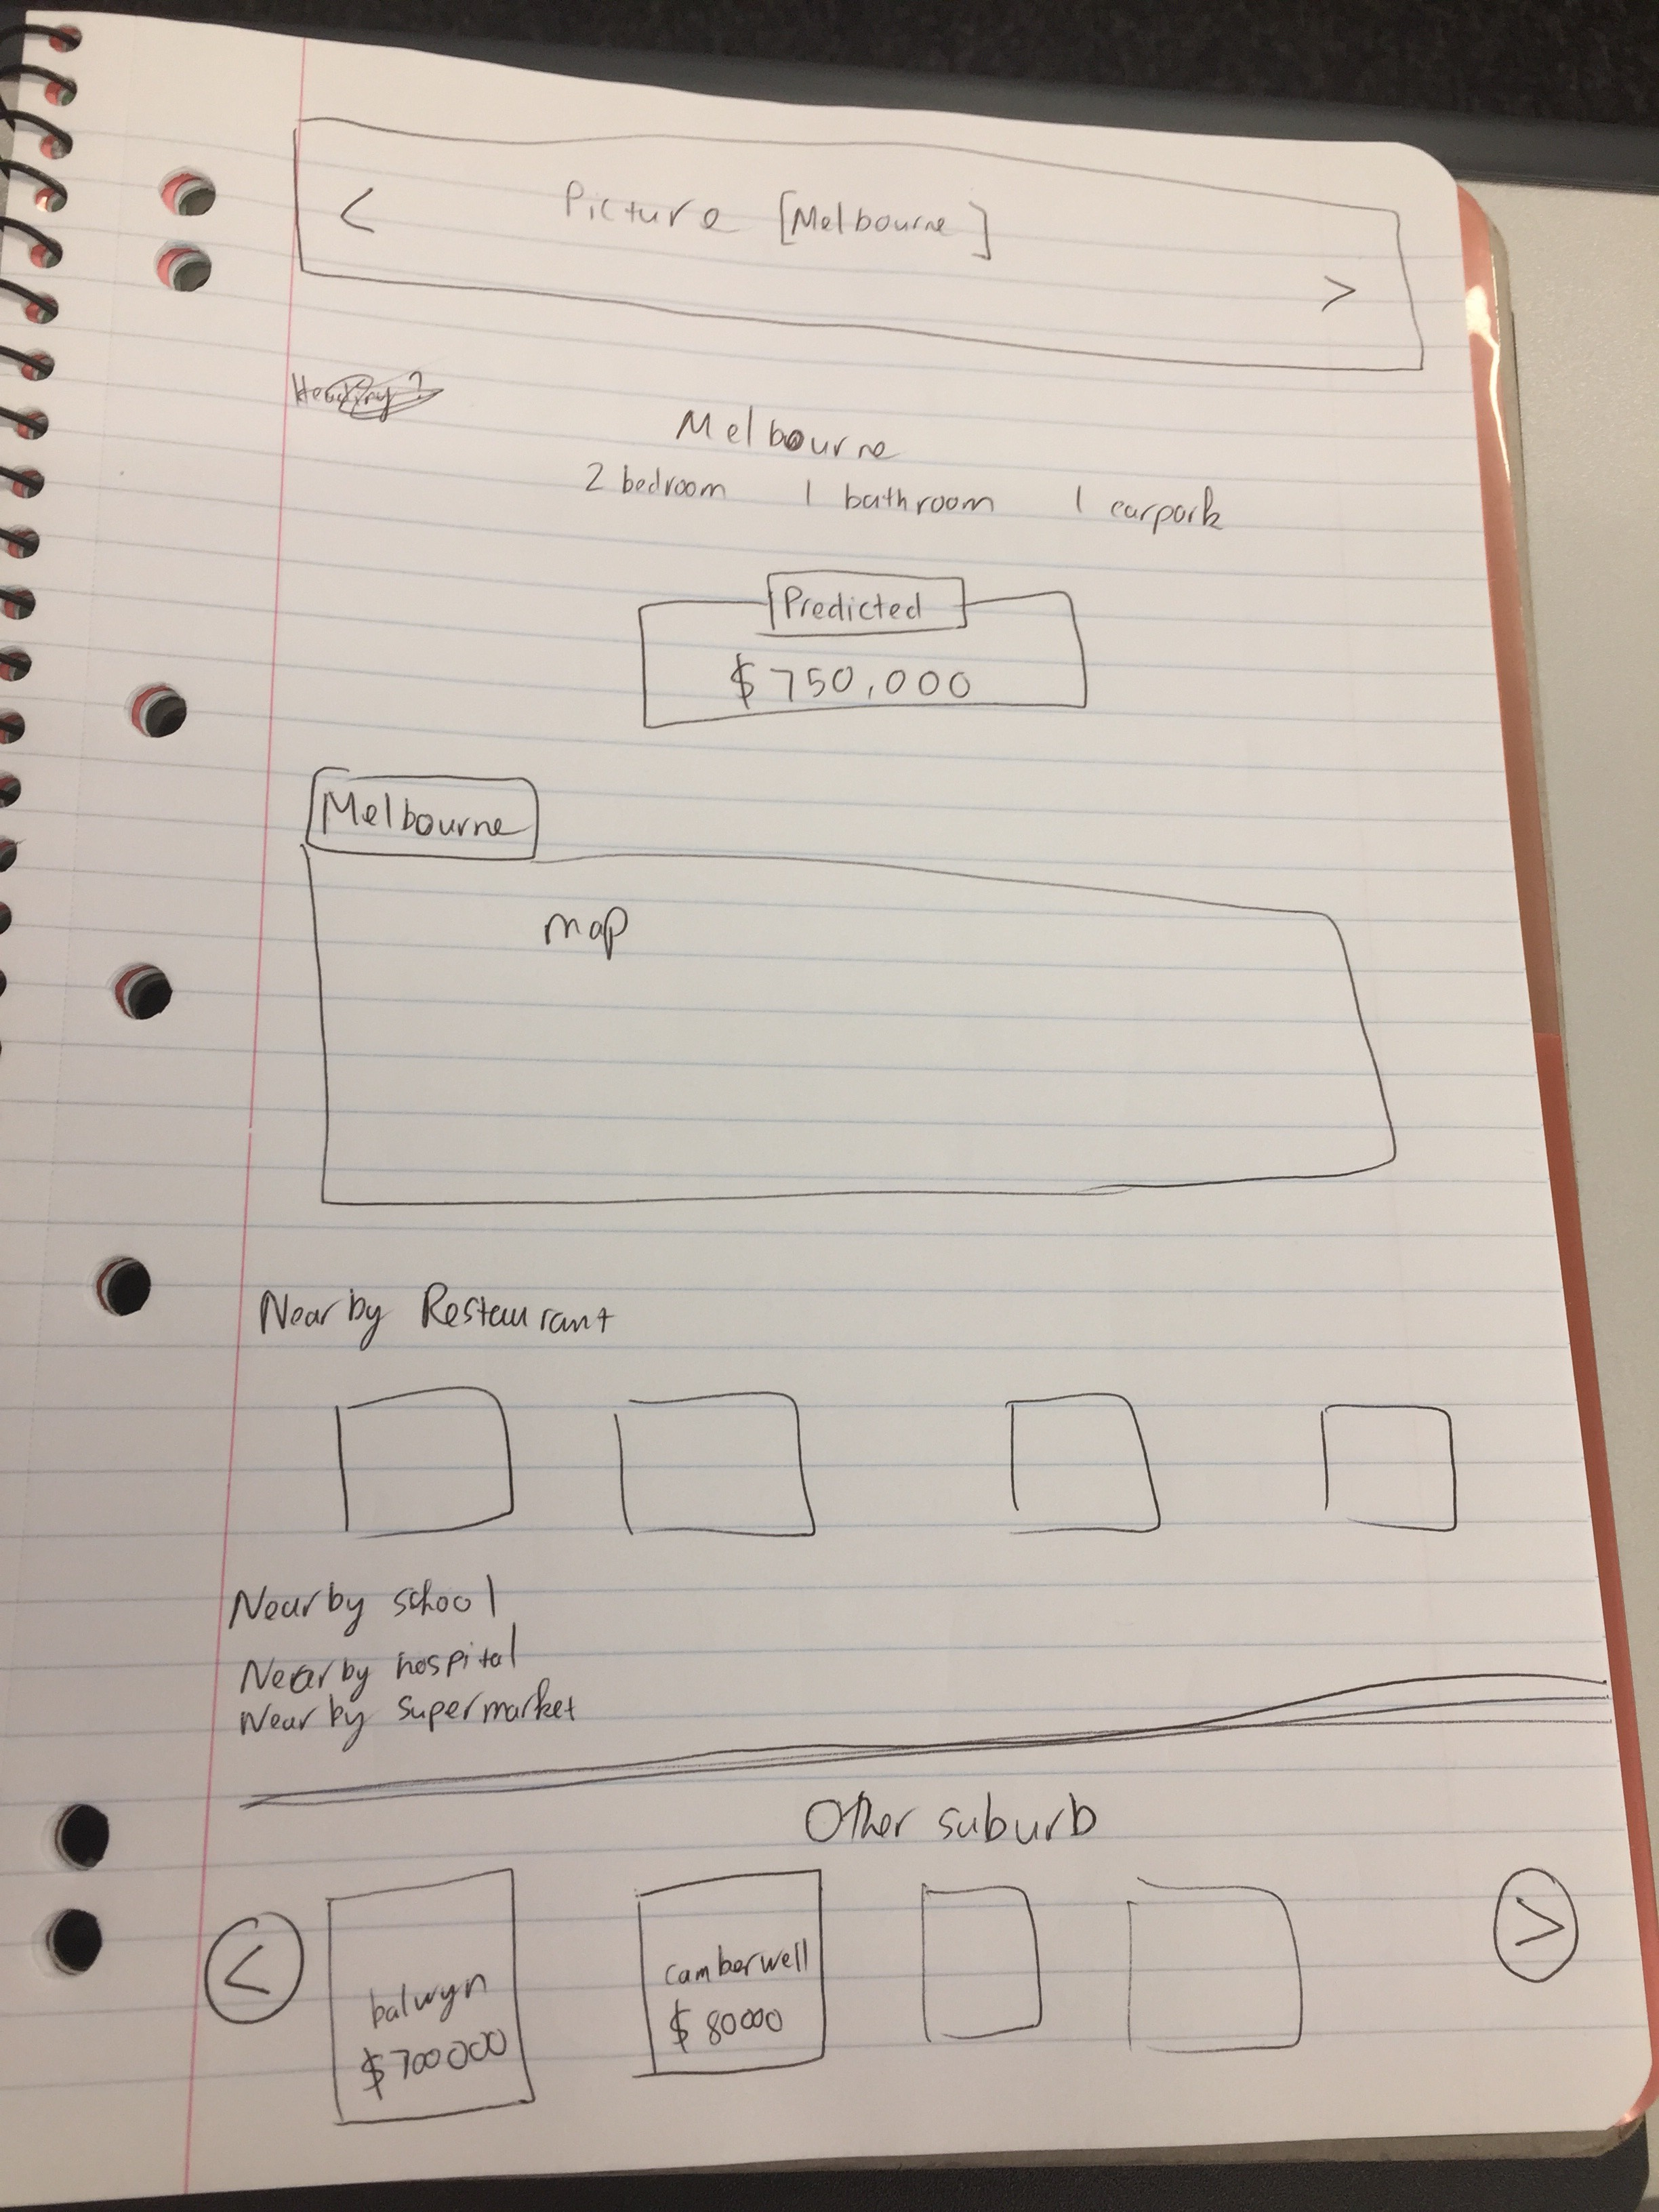 < Picture [Melbourne] >
Heading?
Melbourne
2 bedroom 1 bathroom 1 carpark
Predicted
$750,000
Melbourne
map
Nearby Restaurant
Nearby school
Nearby hospital
Nearby supermarket
Other suburb
< >
balwyn
$700000
camberwell
$80000